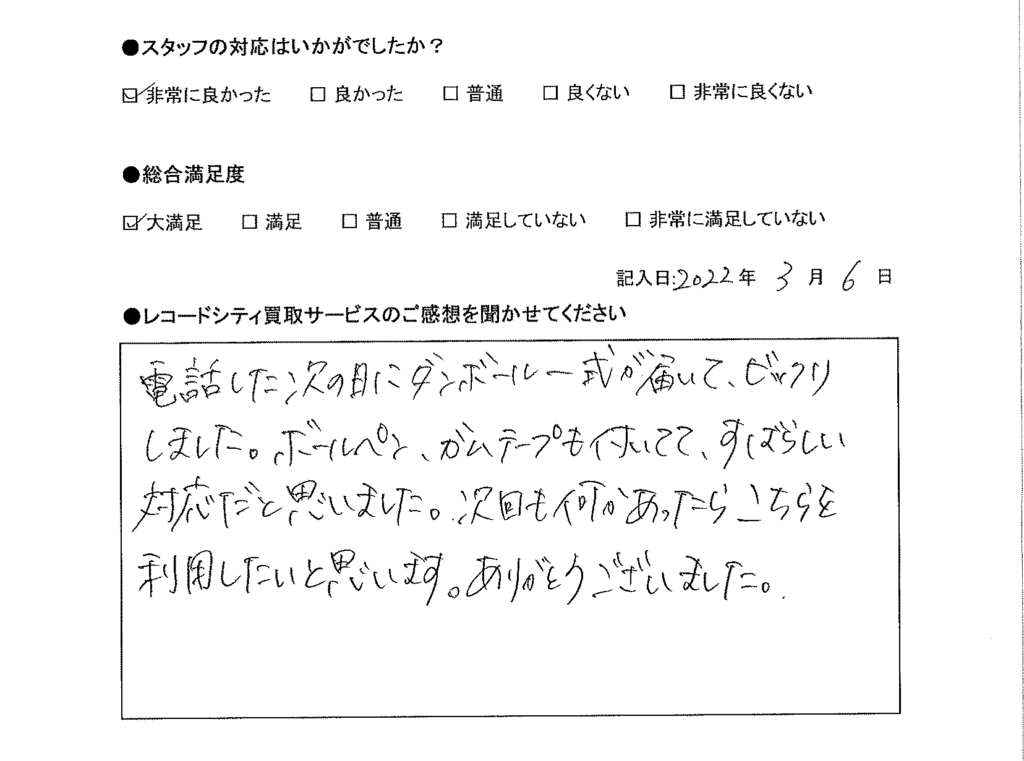 ●スタッフの対応はいかがでしたか？
☑非常に良かった □ 良かった □ 普通 □ 良くない □ 非常に良くない
●総合満足度
☑大満足 □ 満足 □ 普通 □ 満足していない □ 非常に満足していない
記入日:2022年 3 月 6 日
●レコードシティ買取サービスのご感想を聞かせてください
電話した次の日にダンボール一式が届いて、ビックリ
しました。ボールペン、ガムテープも付いてて、すばらしい
対応だと思いました。次回も何かあったらこちらを
利用したいと思います。ありがとうございました。